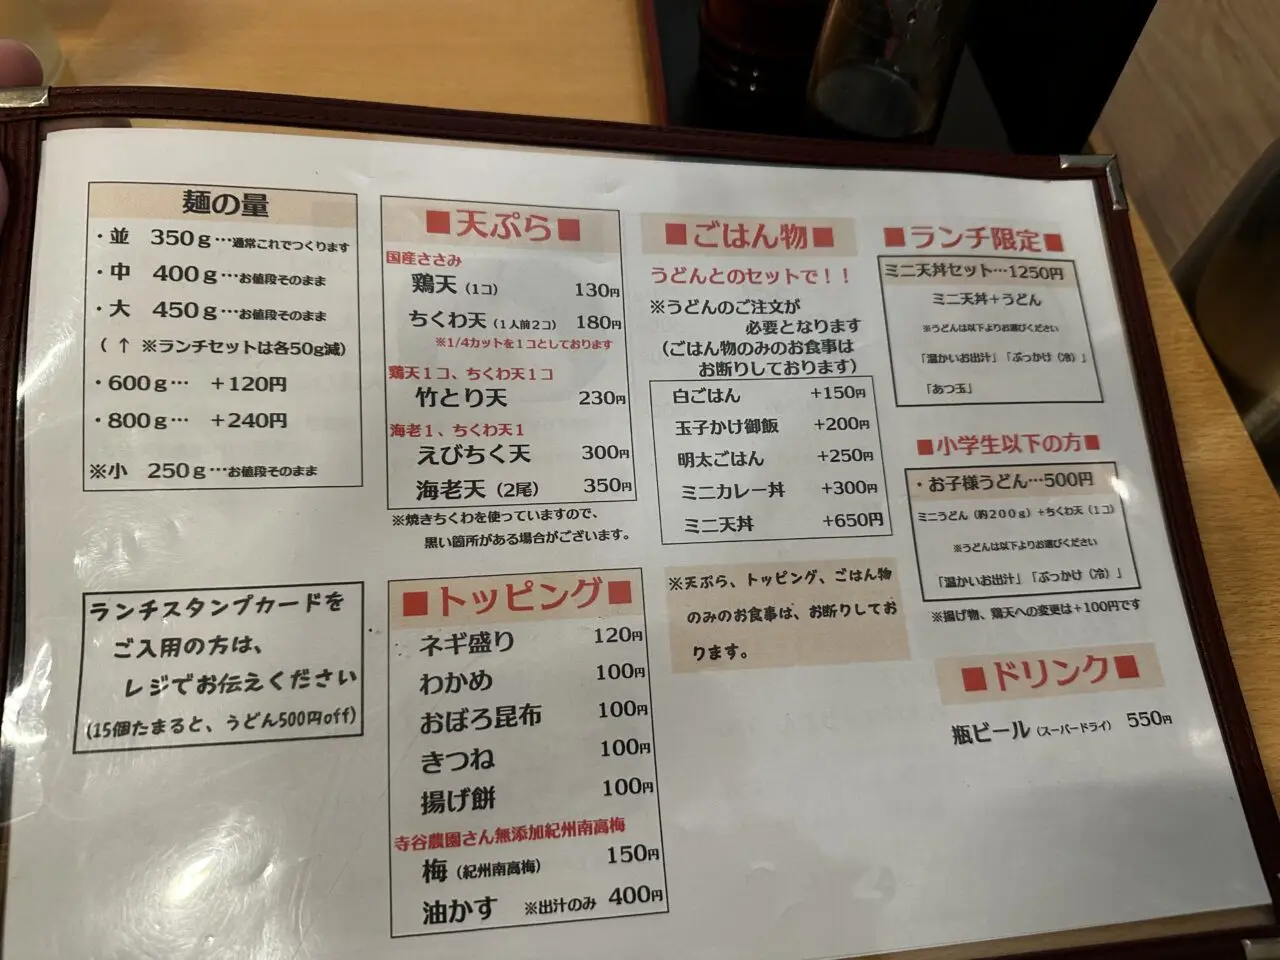 麺の量
・並 350g…通常これでつくります
・中 400g…お値段そのまま
・大 450g…お値段そのまま
(↑ ※ランチセットは各50g減)
・600g… +120円
・800g… +240円
※小 250g…お値段そのまま
ランチスタンプカードを
ご入用の方は、
レジでお伝えください
(15個たまると、うどん500円off)
■天ぷら■
国産ささみ
鶏天(1コ) 130円
ちくわ天(1人前2コ) 180円
※1/4カットを1コとしております
鶏天1コ、ちくわ天1コ
竹とり天 230円
海老1、ちくわ天1
えびちく天 300円
海老天(2尾) 350円
※焼きちくわを使っていますので、
黒い箇所がある場合がございます。
■トッピング■
ネギ盛り 120円
わかめ 100円
おぼろ昆布 100円
きつね 100円
揚げ餅 100円
寺谷農園さん無添加紀州南高梅
梅(紀州南高梅) 150円
油かす ※出汁のみ 400円
■ごはん物■
うどんとのセットで!!
※うどんのご注文が
必要となります
(ごはん物のみのお食事は
お断りしております)
白ごはん +150円
玉子かけ御飯 +200円
明太ごはん +250円
ミニカレー丼 +300円
ミニ天丼 +650円
※天ぷら、トッピング、ごはん物
のみのお食事は、お断りしてお
ります。
■ランチ限定■
ミニ天丼セット…1250円
ミニ天丼+うどん
※うどんは以下よりお選びください
「温かいお出汁」「ぶっかけ(冷)」
「あつ玉」
■小学生以下の方■
・お子様うどん…500円
ミニうどん(約200g)+ちくわ天(1コ)
※うどんは以下よりお選びください
「温かいお出汁」「ぶっかけ(冷)」
※揚げ物、鶏天への変更は+100円です
■ドリンク■
瓶ビール(スーパードライ) 550円